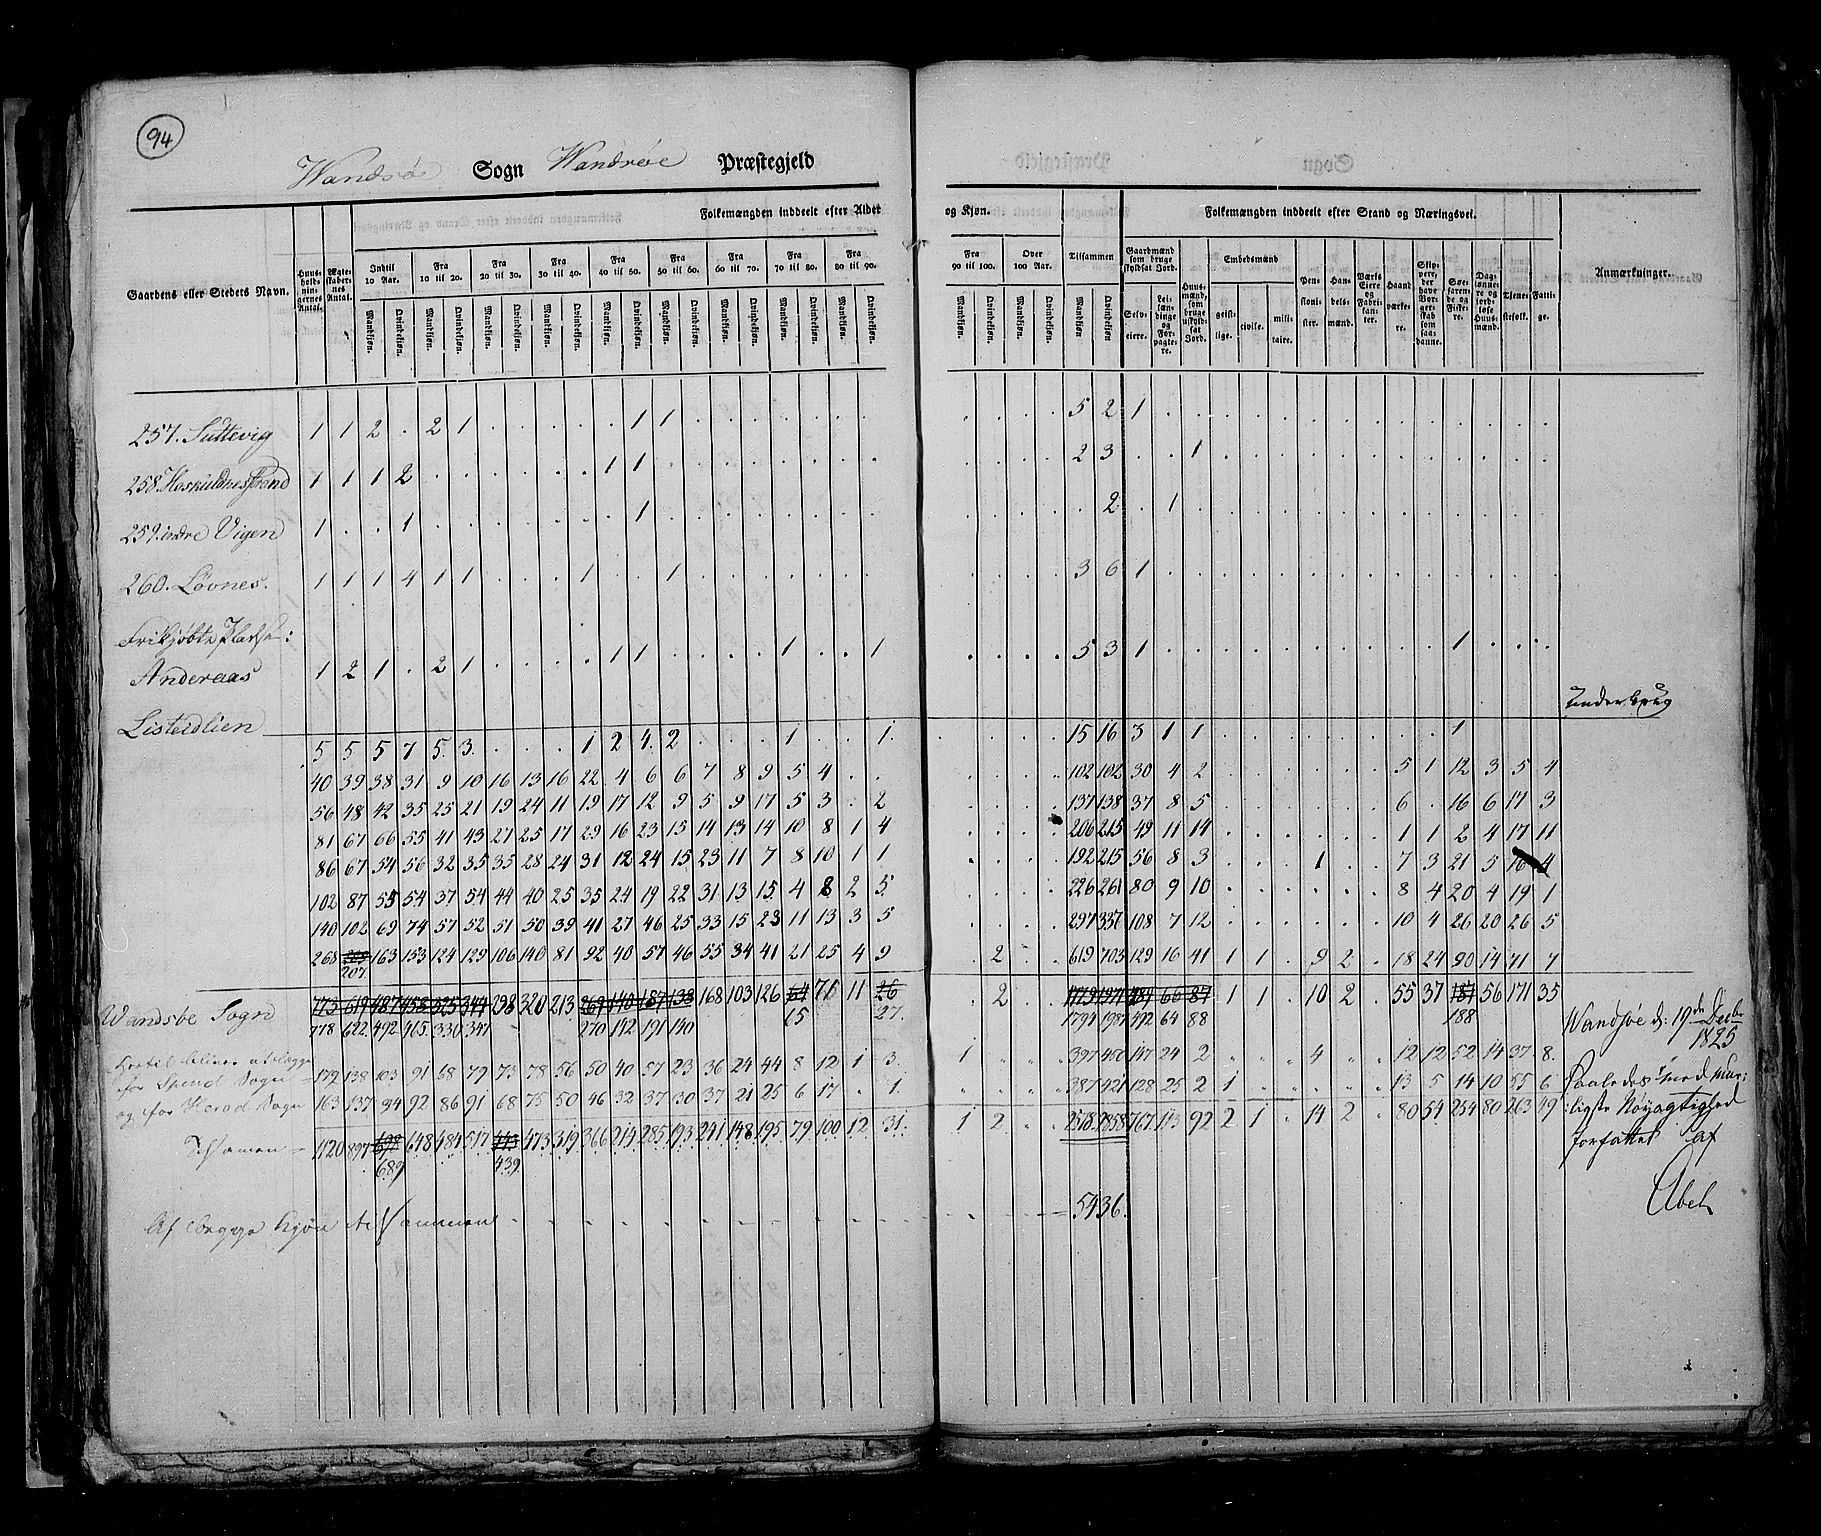 94
Wandsøe Sogn Wandsøe Præstegjeld
Folkemængden inddeelt efter Alder og Kjøn. Folkemængden inddeelt efter Stand og Næringsvei.
Gaardens eller Stedets Navn. Huus-holdningernes Antal. Ægteskabernes Antal. Indtil 10 Aar. Fra 10 til 20. Fra 20 til 30. Fra 30 til 40. Fra 40 til 50. Fra 50 til 60. Fra 60 til 70. Fra 70 til 80. Fra 80 til 90. Fra 90 til 100. Over 100 Aar. Tilsammen Gaardmænd som bruge skyldsat Jord. Huusmænd, som bruge uskyldsat Jord. Embedsmænd Pensionister. Handelsmænd. Værks Eiere og Fabrikanter. Haandværkere. Skippere, der have Borgerskab som saadanne. Søefarende og Fiskere. Daglønnere og jordløse Huusmænd. Tjenestefolk. Fattige. Anmærkninger.
Mandkjøn. Qvindekjøn. Selveiere. Leilændinge og Forpagtere. geistlige. civile. militaire.
257. Suttevig 1 1 2 . 2 1 . . . . . 1 1 . . . . . . 5 2 1
258. Hoskuldnesstrand 1 1 1 2 . . . . . . 1 1 . . . . . . . 2 3 . . 1
259. indre Vigen 1 . . 1 . . . . . . . 1 . . . . . . . 2 . 1
260. Løvnes. 1 1 1 4 1 1 . . . 1 . . 1 . . . . . . 3 6 1
Frikjøbte Pladse:
Anderaas 1 2 1 . 2 1 . . . . 1 1 . . . . 1 . . 1 5 3 1 . . 1
Listeidlien Underbrug
5 5 5 7 5 3 . . . 1 2 4 2 . . . 1 . . 1 15 16 3 1 1 1
40 39 38 31 9 10 16 13 16 22 4 6 6 7 8 9 5 4 . . 102 102 30 4 2 5 1 12 3 5 4
56 48 42 35 25 21 19 24 11 19 17 12 9 5 9 17 5 3 . 2 137 138 37 8 5 6 . 16 6 17 3
81 67 66 55 41 43 27 25 17 29 16 23 15 14 13 14 10 8 1 4 206 215 49 11 14 1 1 2 4 17 11
86 67 54 56 32 35 35 28 24 31 12 24 15 23 11 7 8 10 1 1 192 215 56 8 3 1 7 3 21 5 16 4
102 87 55 54 37 54 44 40 25 35 24 19 22 31 13 15 4 8 2 5 226 261 80 9 10 8 4 20 4 19 1
140 102 69 74 57 52 51 50 39 41 27 46 25 33 15 23 11 13 3 5 297 337 108 7 12 10 4 26 20 26 5
268 209 163 153 124 129 106 140 81 92 40 57 46 55 34 41 21 25 4 9 2 619 703 129 16 41 1 1 9 2 18 24 90 14 71 7
207
Wandsøe Sogn 773 619 487 458 325 344 298 320 213 269 140 187 138 168 103 126 64 71 11 26 2 487 66 87 1 1 10 2 55 37 187 56 171 35
778 622 492 465 330 347 270 142 191 140 15 27 1794 1987 492 64 88 188
Wandsøe d: 19de Decbr 1825
for Spind Sogn 179 138 103 91 68 79 73 78 56 50 40 57 23 36 24 44 8 12 1 3 1 397 450 147 24 2 4 12 12 52 14 37 8
og for Herad Sogn 163 137 94 92 86 91 68 75 50 46 32 37 30 37 21 25 6 17 . 1 387 421 128 25 2 1 13 5 14 10 55 6
Saaledes med muu:
ligste Nøyagtighed
forfattet af
Tilsamen 1120 897 698 648 484 517 443 473 319 366 214 285 193 241 148 195 79 100 12 31 1 2 2578 2858 767 113 92 2 1 14 2 80 54 254 80 263 49
689 439
Abel
Af begge Kjøn tilsammen 5436.